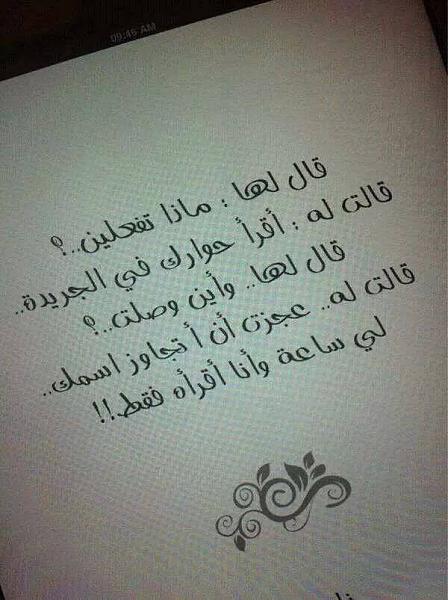 09:46 AM
قال لها : ماذا تفعلين..؟
قالت له : أقرأ حوارك في الجريدة..
قال لها.. وأين وصلت..؟
قالت له.. عجزت أن أتجاوز اسمك..
لي ساعة وأنا أقرأه فقط!!